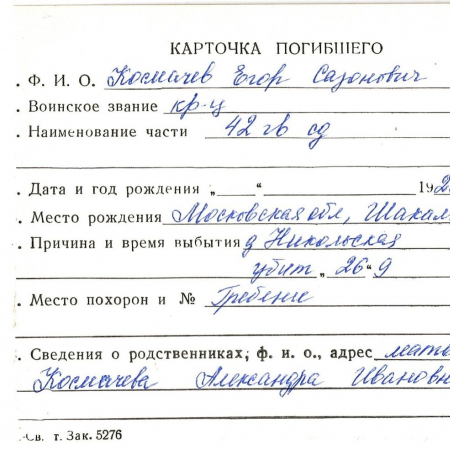 КАРТОЧКА ПОГИБШЕГО
. Ф. И. О. Космачев Егор Сазонович
. Воинское звание кр-ц
. Наименование части 42 гв сд
. Дата и год рождения „ “ 192
. Место рождения Московская обл, Шакал
. Причина и время выбытия д Никольская
убит „ 26 “ 9
. Место похорон и № Гребенге
. Сведения о родственниках, ф. и. о., адрес мать
Космачева Александра Ивановн
-Св. т. Зак. 5276